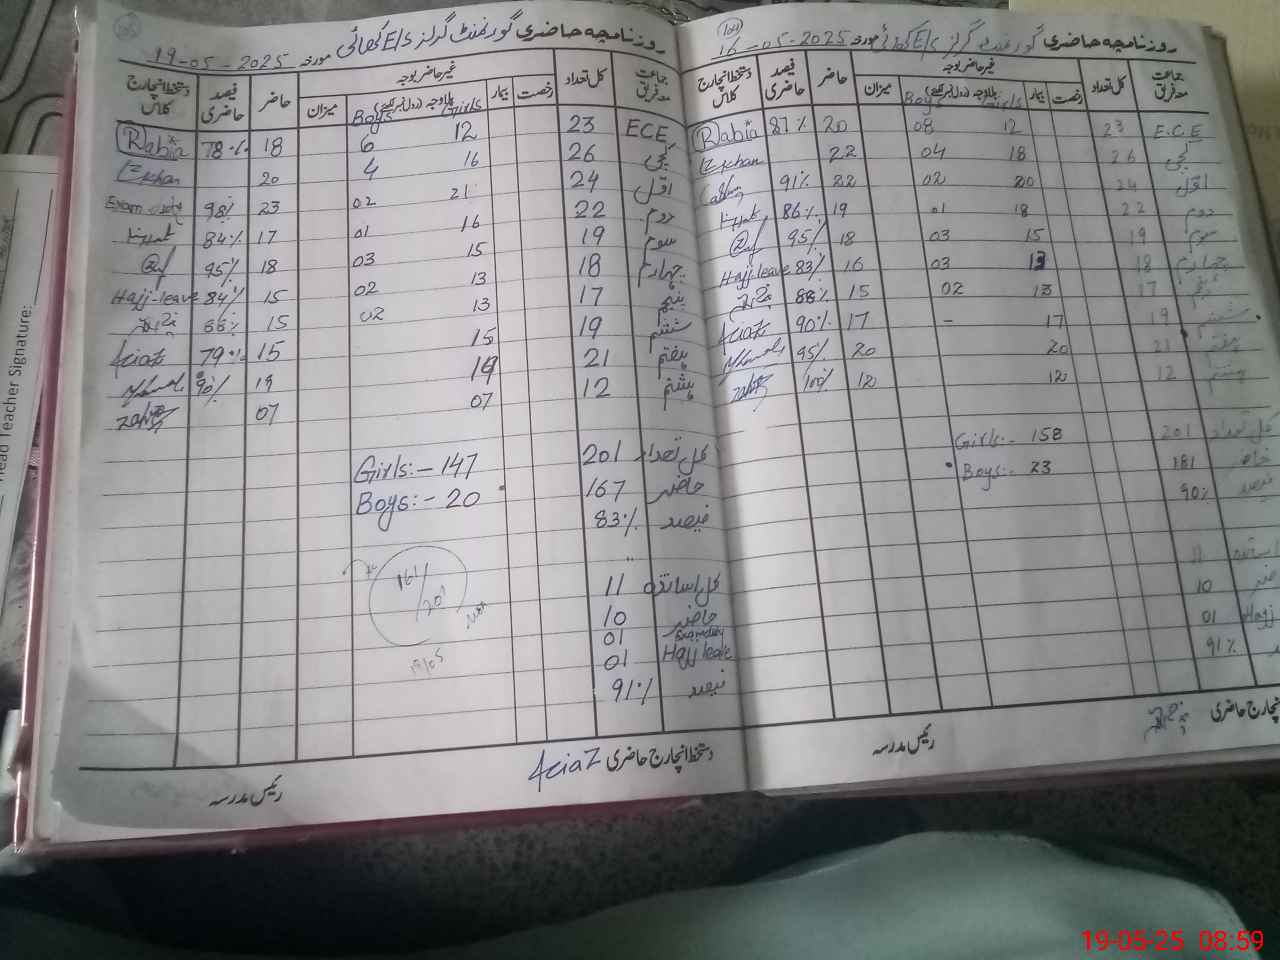 روزنامچہ حاضری گورنمنٹ گرلز E/S کھائی مورخہ 19-05-2025
جماعت معہ فریق کل تعداد غیر حاضر بوجہ حاضر فیصد حاضری دستخط انچارج کلاس
رخصت بیمار بلاوجہ (رول نمبر لکھئے) میزان
Girls Boys
ECE 23 12 6 18 78% Rabia
کچی 26 16 4 20 IZ Khan
اول 24 21 02 23 98% Exam duty
دوم 22 16 01 17 84%
سوم 19 15 03 18 95%
چہارم 18 13 02 15 84% Hajj-leave
پنجم 17 13 02 15 88%
ششم 19 15 15 79%
ہفتم 21 19 19 90%
ہشتم 12 07 07
کل تعداد 201 Girls:- 147
حاضر 167 Boys:- 20
فیصد 83%
کل اساتذہ 11
حاضر 10
01
Hajj leave 01
فیصد 91%
دستخط انچارج حاضری
رئیس مدرسہ
روزنامچہ حاضری گورنمنٹ گرلز E/S کھائی مورخہ 16-05-2025
جماعت معہ فریق کل تعداد غیر حاضر بوجہ حاضر فیصد حاضری دستخط انچارج کلاس
رخصت بیمار بلاوجہ (رول نمبر لکھئے) میزان
Girls Boys
E.C.E 23 12 08 20 87% Rabia
کچی 26 18 04 22 IZ Khan
اول 24 20 02 22 91%
دوم 22 18 01 19 86%
سوم 19 15 03 18 95%
چہارم 18 13 03 16 83% Hajj leave
پنجم 17 13 02 15 88%
ششم 19 17 - 17 90%
ہفتم 21 20 20 95%
ہشتم 12 12 12 100%
کل تعداد 201 Girls:- 158
حاضر 181 Boys:- 23
فیصد 90%
اساتذہ 11
10
Hajj 01
91%
انچارج حاضری
رئیس مدرسہ
Head Teacher Signature:
19-05-25 08:59